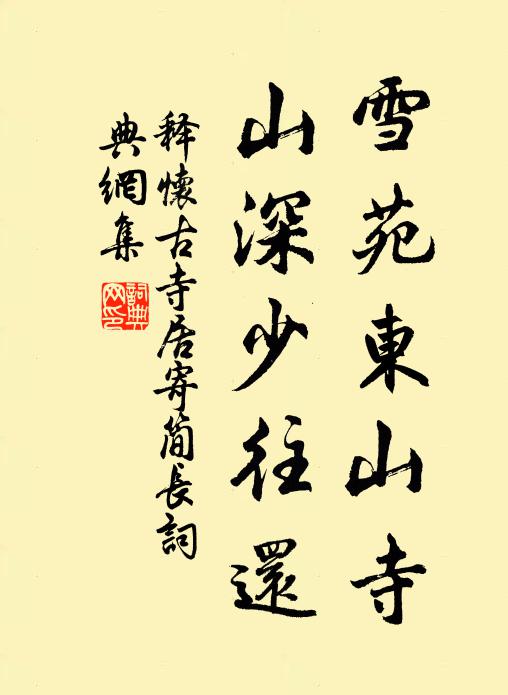 雪苑東山寺
山深少往還
释懷古寺居寄簡長詞
典網集
詞典
网印